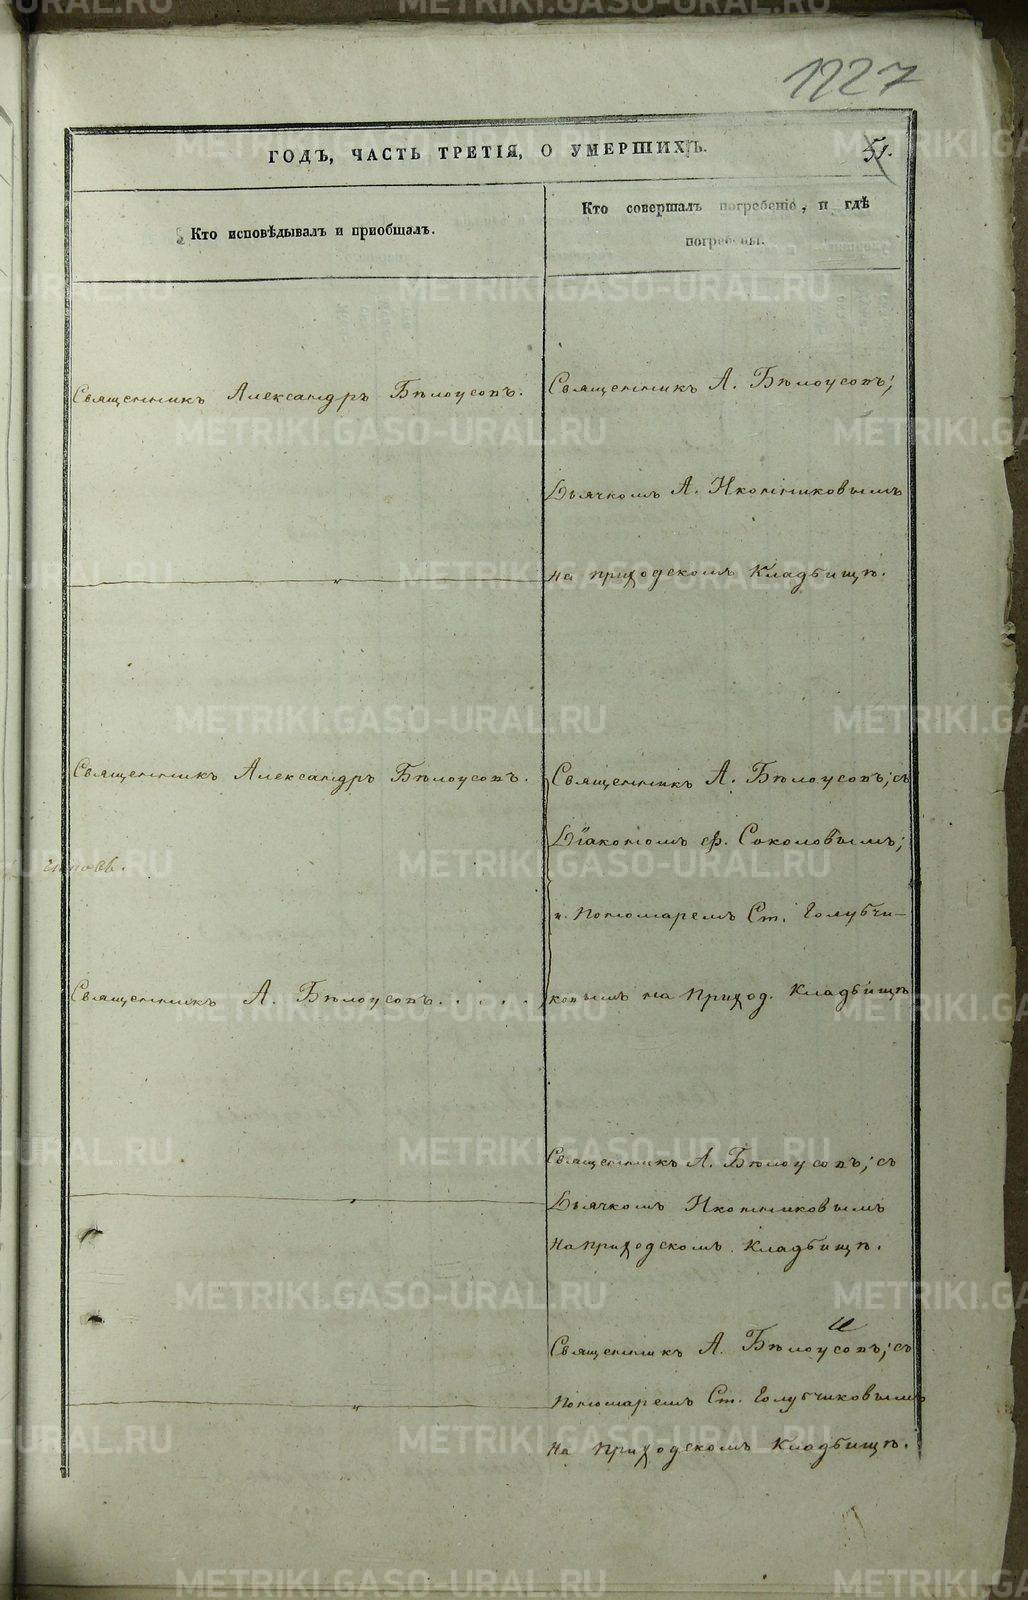 1227
ГОДЪ, ЧАСТЬ ТРЕТІЯ, О УМЕРШИХЪ.
51.
Кто исповѣдывалъ и приобщалъ.
Кто совершалъ погребеніе, и гдѣ
погребены.
Священникъ Александръ Бѣлоусовъ.
Священникъ А. Бѣлоусовъ;
Дьячкомъ А. Иконниковымъ
на приходскомъ Кладбищѣ.
Священникъ Александръ Бѣлоусовъ.
Священникъ А. Бѣлоусовъ; съ
Діакономъ Ф. Соколовымъ;
и Пономаремъ Ст. Голубчи-
Священникъ А. Бѣлоусовъ. . . . .
ковымъ на Приход. Кладбищѣ
Священникъ А. Бѣлоусовъ; съ
Дьячкомъ Иконниковымъ
на приходскомъ Кладбищѣ.
Священникъ А. Бѣлоусовъ; съ
Пономаремъ Ст. Голубчиковымъ
на Приходскомъ Кладбищѣ.
METRIKI.GASO-URAL.RU